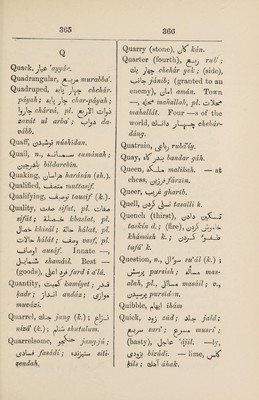 365
366
Q
Quack, عيار 'ayyár.
Quadrangular, مربع murabba'.
Quadruped, چهار پايه chehár-
páyah; چار پايه chár-páyah;
چارپا chárá, pl. ذوات الاربع
zavát ul arba'; دواب da-
vább.
Quaff, نوشيدن núshídan.
Quail, n., سمانه sumánah;
بلدرچين bildarchín.
Quaking, هراسان harásán (sh.).
Qualified, متصف muttasif.
Qualifying, توصيف tausíf (k.).
Quality, صفت sifat, pl. صفات
sifát; خصلت khaslat, pl.
خصال khisál; حالت hálat, pl.
حالات hálát; وصف vasf, pl.
اوصاف ausáf. Innate —,
شمايل shamáíl. Best —
(goods), فرد اعلى fard i a'lá.
Quantity, كميت kamíyat; قدر
kadr; اندازه andáz; موازى
muvází.
Quarrel, جنگ jang (k.); نزاع
nizá' (k.); شتلم shutulum.
Quarrelsome, جنگجو jang-jú;
فسادى fasádí; ستيزنده sití-
zendah.
Quarry (stone), كان kán.
Quarter (fourth), ربع rub';
چهار يك chehár yek; (side),
جانب jánib; (granted to an
enemy), امان amán. Town
—, محله mahallah, pl. محلات
mahallát. Four —s of the
world, چهار دانگ chehár-
dáng.
Quatrain, رباعى rubá'íy.
Quay, بندرگاه bandar gáh.
Queen, ملكه malikah. — at
chess, فرزين farzín.
Queer, غريب gharíb.
Quell, تسلى كردن tasalli k.
Quench (thirst), تسكين دادن
taskín d.; (fire), خاموش كردن
khámúsh k.; اطفا كردن
tufú' k.
Question, n., سؤال su'ál (k.);
پرسش pursish; مسئله mas-
alah, pl., مسائل masáíl; v.,
پرسيدن pursídan.
Quibble, ايهام íhám
Quick, زود zúd; جلد jald;
سريع sarí'; مسرع musri';
(hasty), عاجل 'ájil. —ly,
بزودى bizúdí. — lime, كلس
kils; اهك áhak.